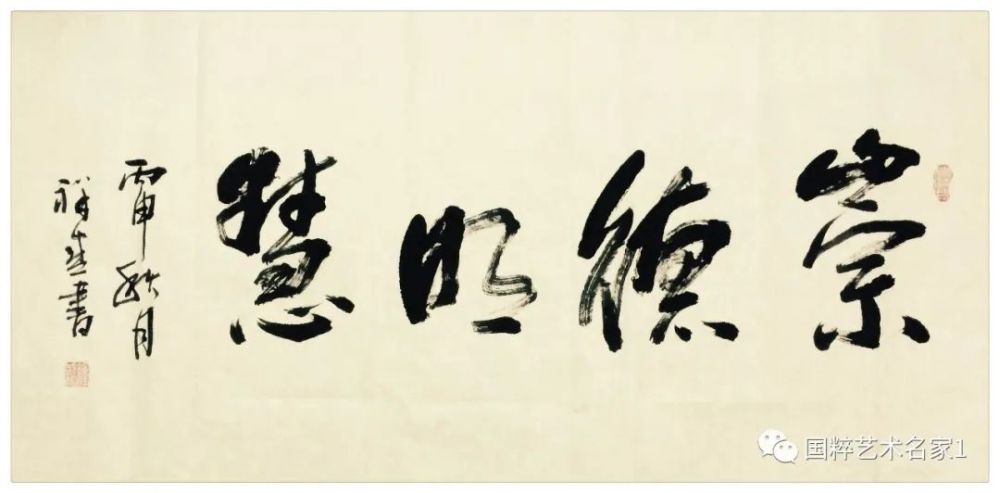 崇德明慧
丙申秋月
祥書
国粹艺术名家1